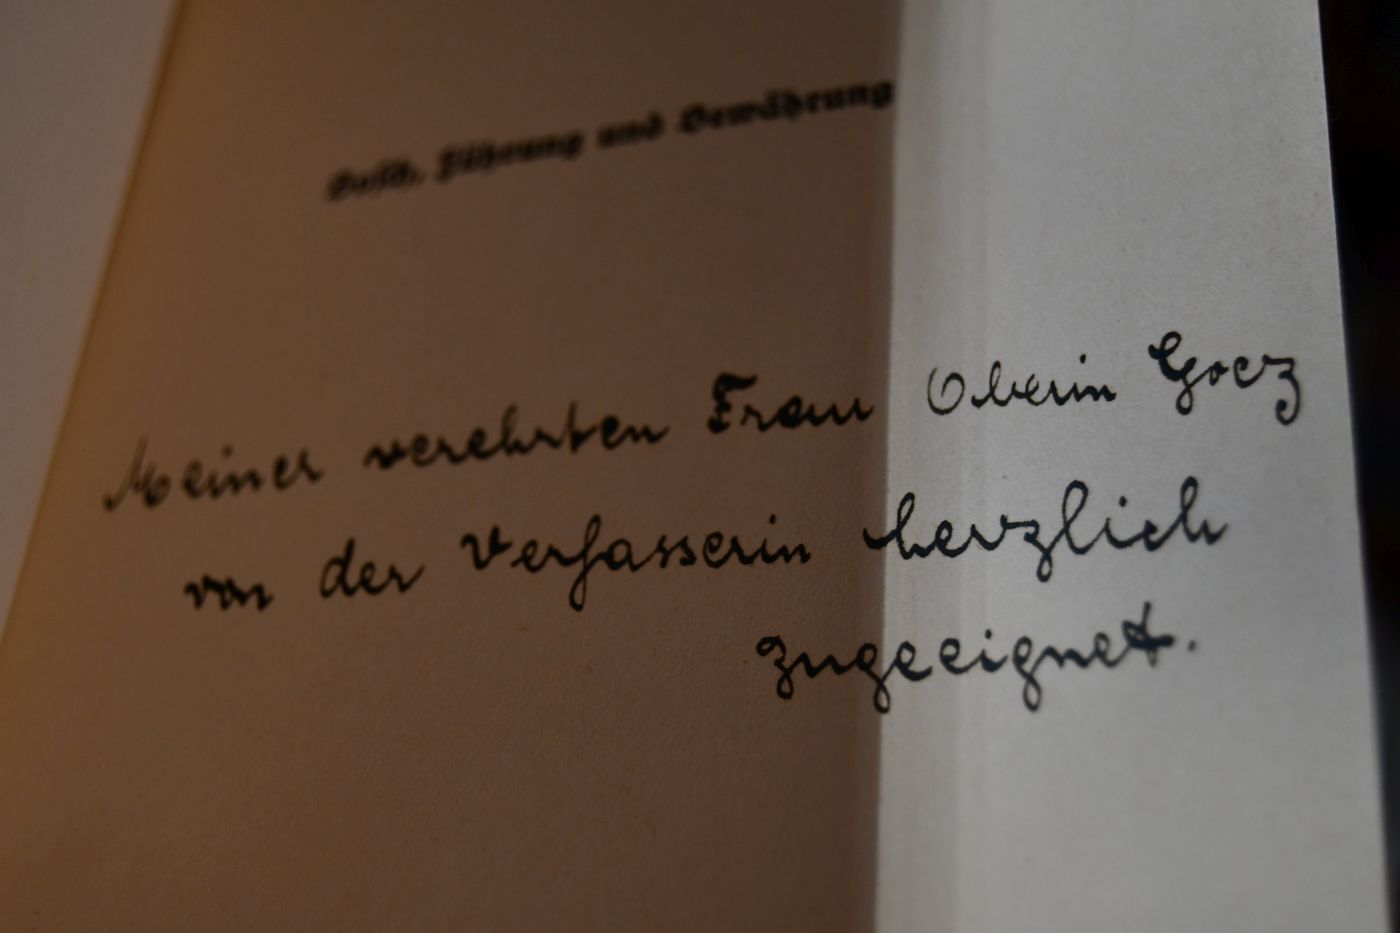 Führung und Bewährung
Meiner verehrten Frau Oberin Goez
von der Verfasserin herzlich
zugeeignet.